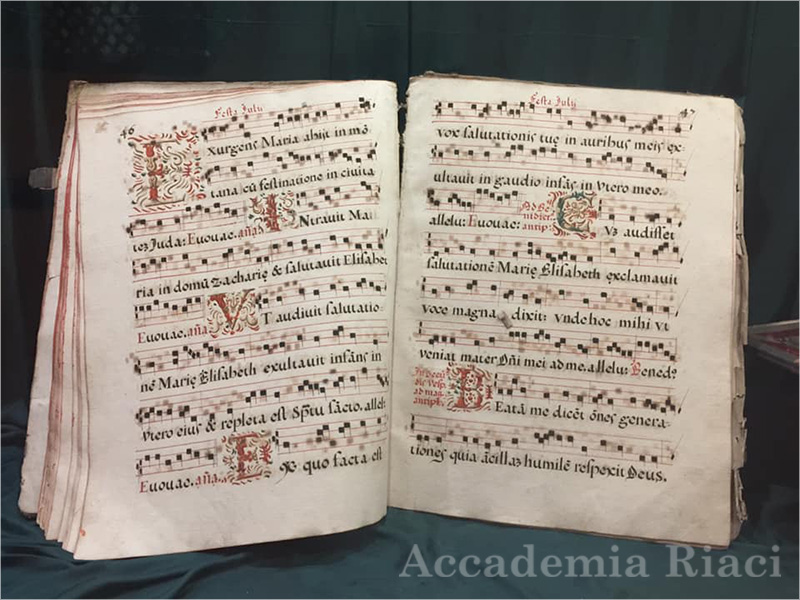 Festa Julij
46
Exurgens Maria abijt in mō
tana cū festinatione in civita
teȝ Juda: Euouae. aña Intravit Ma
ria in domū zacharię & salutavit Elisabet
Euouae. aña Vt audivit salutatio
nē Marię Elisabeth exultavit infāns in
vtero eius & repleta est Spītu sācto. allel:
Euouae. aña. Ex quo facta est
Festa Julij
47
vox salutationis tuę in auribus meis ex
ultavit in gaudio infās in vtero meo.
allelu: Euouae: Ad Be nidict. antip: Cuȝ audisset
salutationē Marię Elisabeth exclamavit
voce magna dixit: vnde hoc mihi vt
veniat mater Dñi mei ad me. allelu: Bened?
In secū dis Vesp. ad mag. antiph. Beatā me dicēt ōnes genera-
tiones quia ācillaȝ humilē respexit Deus.
Accademia Riaci